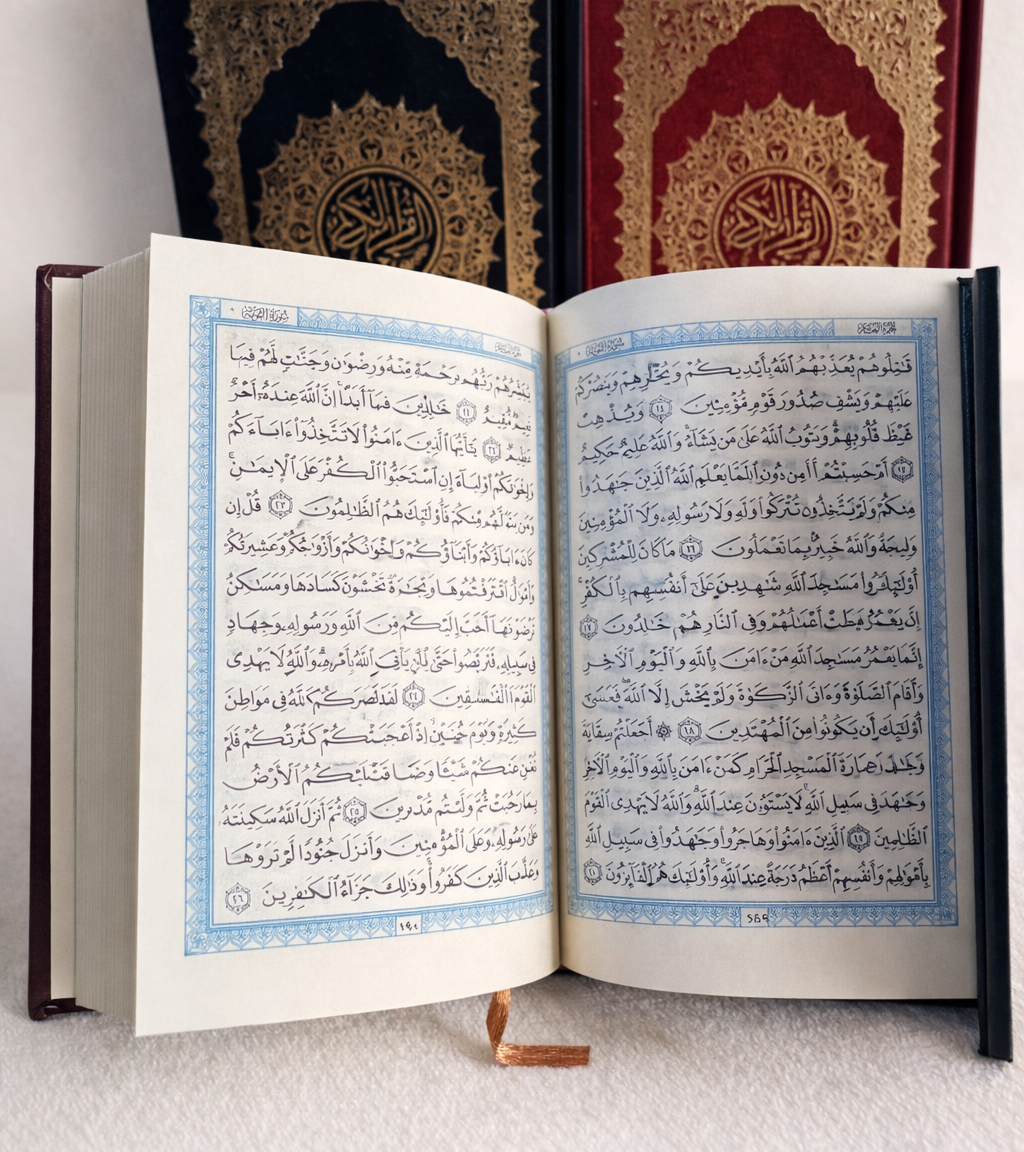 ٱلْقُرْءَانُ ٱلْكَرِيمُ
ٱلْقُرْءَانُ ٱلْكَرِيمُ
سُورَةُ التَّوْبَةِ
قَٰتِلُوهُمْ يُعَذِّبْهُمُ ٱللَّهُ بِأَيْدِيكُمْ وَيَنصُرْكُمْ
عَلَيْهِمْ وَيَشْفِ صُدُورَ قَوْمٍ مُّؤْمِنِينَ ١٤ وَيُذْهِبْ
غَيْظَ قُلُوبِهِمْ وَيَتُوبُ ٱللَّهُ عَلَىٰ مَن يَشَآءُ وَٱللَّهُ عَلِيمٌ حَكِيمٌ
أَمْ حَسِبْتُمْ يَعْلَمِ ٱللَّهُ ٱلَّذِينَ جَٰهَدُوا۟
مِنكُمْ وَلَمْ يَتَّخِذُوا۟ وَلَا رَسُولِهِۦ وَلَا ٱلْمُؤْمِنِينَ
وَلِيجَةً وَٱللَّهُ خَبِيرٌۢ بِمَا تَعْمَلُونَ ١٦ مَا كَانَ لِلْمُشْرِكِينَ
مَسَٰجِدَ ٱللَّهِ شَٰهِدِينَ عَلَىٰٓ أَنفُسِهِم بِٱلْكُفْرِ
أَعْمَٰلُهُمْ وَفِى ٱلنَّارِ هُمْ خَٰلِدُونَ ١٧
إِنَّمَا يَعْمُرُ مَسَٰجِدَ ٱللَّهِ مَنْ ءَامَنَ بِٱللَّهِ وَٱلْيَوْمِ ٱلْءَاخِرِ
وَأَقَامَ ٱلصَّلَوٰةَ وَءَاتَى ٱلزَّكَوٰةَ وَلَمْ يَخْشَ إِلَّا ٱللَّهَ فَعَسَىٰٓ
أُو۟لَٰٓئِكَ أَن يَكُونُوا۟ مِنَ ٱلْمُهْتَدِينَ ١٨ ۞ أَجَعَلْتُمْ سِقَايَةَ
ٱلْمَسْجِدِ ٱلْحَرَامِ كَمَنْ ءَامَنَ بِٱللَّهِ وَٱلْيَوْمِ ٱلْءَاخِرِ
وَجَٰهَدَ فِى سَبِيلِ ٱللَّهِ لَا يَسْتَوُۥنَ عِندَ ٱللَّهِ وَٱللَّهُ لَا يَهْدِى ٱلْقَوْمَ
ٱلظَّٰلِمِينَ ١٩ ٱلَّذِينَ ءَامَنُوا۟ وَهَاجَرُوا۟ وَجَٰهَدُوا۟ فِى سَبِيلِ ٱللَّهِ
بِأَمْوَٰلِهِمْ وَأَنفُسِهِمْ أَعْظَمُ دَرَجَةً عِندَ ٱللَّهِ وَأُو۟لَٰٓئِكَ هُمُ ٱلْفَآئِزُونَ
سُورَةُ التَّوْبَةِ
يُبَشِّرُهُمْ رَبُّهُم بِرَحْمَةٍ مِّنْهُ وَرِضْوَٰنٍ وَجَنَّٰتٍ لَّهُمْ فِيهَا
نَعِيمٌ مُّقِيمٌ خَٰلِدِينَ فِيهَآ أَبَدًا إِنَّ ٱللَّهَ عِندَهُۥٓ أَجْرٌ
عَظِيمٌ يَٰٓأَيُّهَا ٱلَّذِينَ ءَامَنُوا۟ لَا تَتَّخِذُوٓا۟ ءَابَآءَكُمْ
وَإِخْوَٰنَكُمْ أَوْلِيَآءَ إِنِ ٱسْتَحَبُّوا۟ ٱلْكُفْرَ عَلَى ٱلْإِيمَٰنِ
وَمَن يَتَوَلَّهُم مِّنكُمْ فَأُو۟لَٰٓئِكَ هُمُ ٱلظَّٰلِمُونَ ٢٣ قُلْ إِن
كَانَ ءَابَآؤُكُمْ وَأَبْنَآؤُكُمْ وَإِخْوَٰنُكُمْ وَأَزْوَٰجُكُمْ وَعَشِيرَتُكُمْ
وَأَمْوَٰلٌ ٱقْتَرَفْتُمُوهَا وَتِجَٰرَةٌ تَخْشَوْنَ كَسَادَهَا وَمَسَٰكِنُ
تَرْضَوْنَهَآ أَحَبَّ إِلَيْكُم مِّنَ ٱللَّهِ وَرَسُولِهِۦ وَجِهَادٍ
فِى سَبِيلِهِۦ فَتَرَبَّصُوا۟ حَتَّىٰ يَأْتِىَ ٱللَّهُ بِأَمْرِهِۦ وَٱللَّهُ لَا يَهْدِى
ٱلْقَوْمَ ٱلْفَٰسِقِينَ ٢٤ لَقَدْ نَصَرَكُمُ ٱللَّهُ فِى مَوَاطِنَ
كَثِيرَةٍ وَيَوْمَ حُنَيْنٍ إِذْ أَعْجَبَتْكُمْ كَثْرَتُكُمْ فَلَمْ
تُغْنِ عَنكُمْ شَيْـًٔا ٱلْأَرْضُ
بِمَا رَحُبَتْ ثُمَّ وَلَّيْتُم مُّدْبِرِينَ ٢٥ ثُمَّ أَنزَلَ ٱللَّهُ سَكِينَتَهُۥ
عَلَىٰ رَسُولِهِۦ وَعَلَى ٱلْمُؤْمِنِينَ وَأَنزَلَ جُنُودًا لَّمْ تَرَوْهَا
وَعَذَّبَ ٱلَّذِينَ كَفَرُوا۟ وَذَٰلِكَ جَزَآءُ ٱلْكَٰفِرِينَ ٢٦